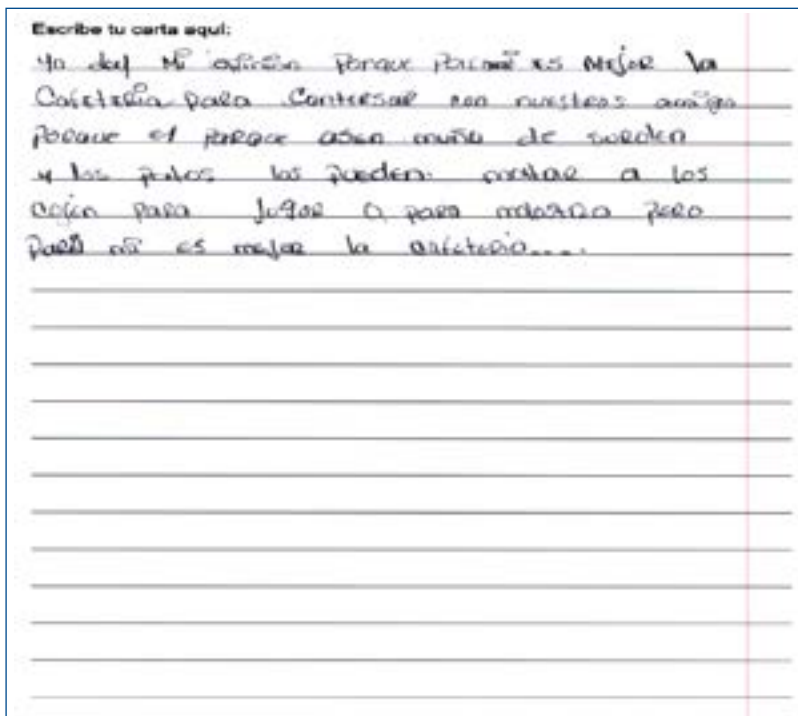 Escribe tu carta aquí:
Yo doy Mi opinión Porque Para mi es Mejor la
Cafetería para Conversar con nuestros amigo
Porque el parque asen muño de
y los los pueden a los
para Jugar o para pero
Para mi es mejor la cafeteria....